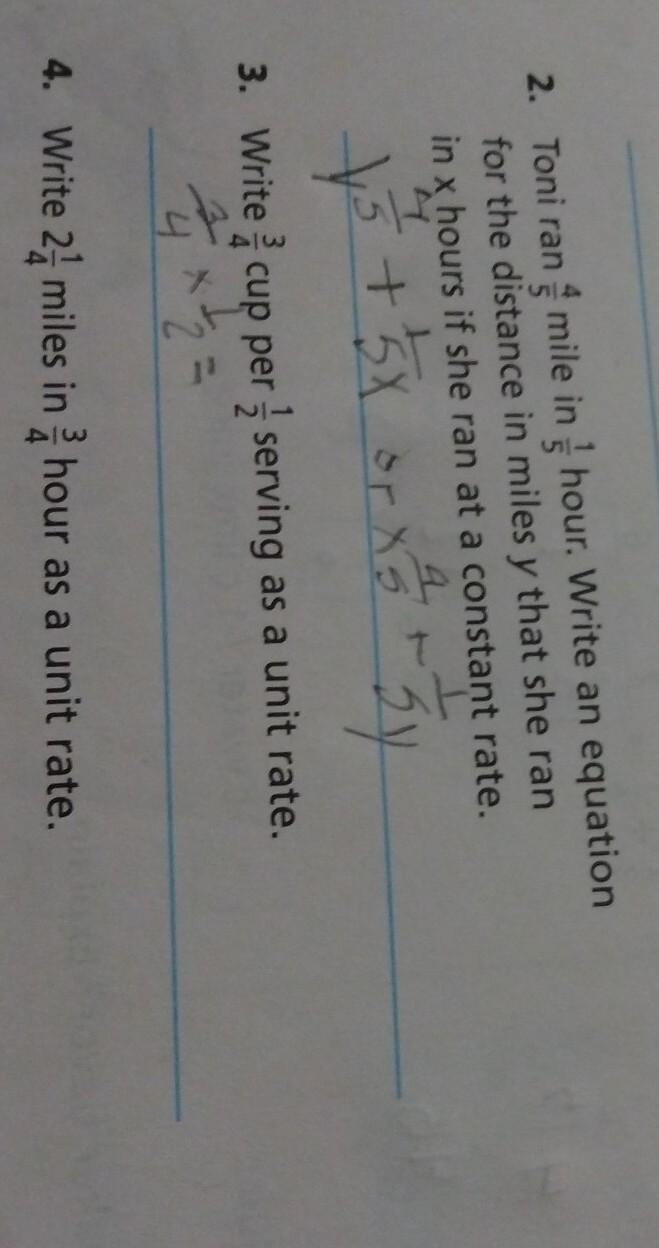 2. Toni ran 4/5 mile in 1/5 hour. Write an equation
for the distance in miles y that she ran
in x hours if she ran at a constant rate.
y 4/5 + 1/5x or x 4/5 + 1/5y
3. Write 3/4 cup per 1/2 serving as a unit rate.
3/4 x 1/2 =
4. Write 2 1/4 miles in 3/4 hour as a unit rate.